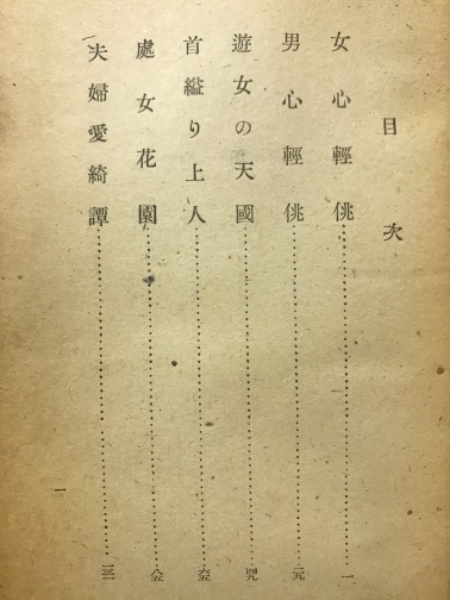 目次
女心輕佻……一
男心輕佻……元
遊女の天國……咒
首縊り上人……
處女花園……
夫婦愛綺譚……
一